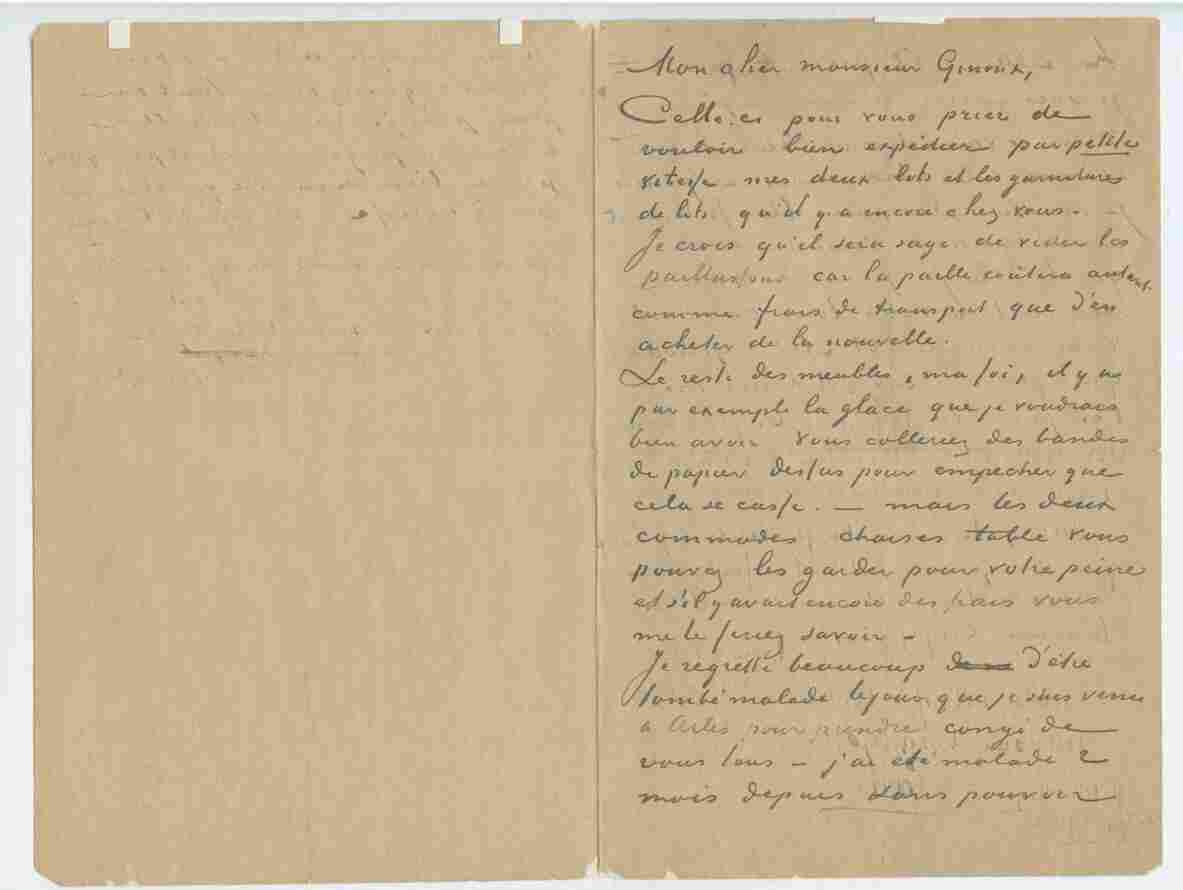 Mon cher monsieur Ginoux,
Celle-ci pour vous prier de
vouloir bien expédier par petite
vitesse mes deux lits et les garnitures
de lits qu'il y a encore chez vous.
Je crois qu'il sera sage de vider les
paillassons car la paille coûtera autant
comme frais de transport que d'en
acheter de la nouvelle.
Le reste des meubles, ma foi, il y a
par exemple la glace que je voudrais
bien avoir. Vous collerez des bandes
de papier dessus pour empecher que
cela se casse. — mais les deux
commodes, chaises table vous
pouvez les garder pour votre peine
et s'il y avait encore des frais vous
me le feriez savoir —
Je regrette beaucoup d'être
tombé malade le jour que je suis venu
à Arles pour prendre congé de
vous tous — j'ai été malade 2
mois depuis sans pouvoir